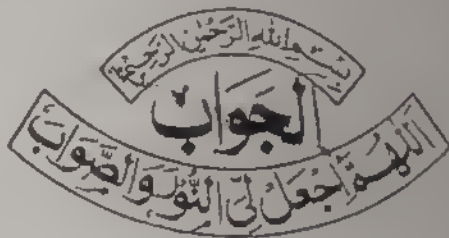 بِسْمِ اللهِ الرَّحْمٰنِ الرَّحِيْمِ
الجواب
اَللّٰهُمَّ اجْعَلْ لِّیَ النُّوْرَ وَالصَّوَابَ